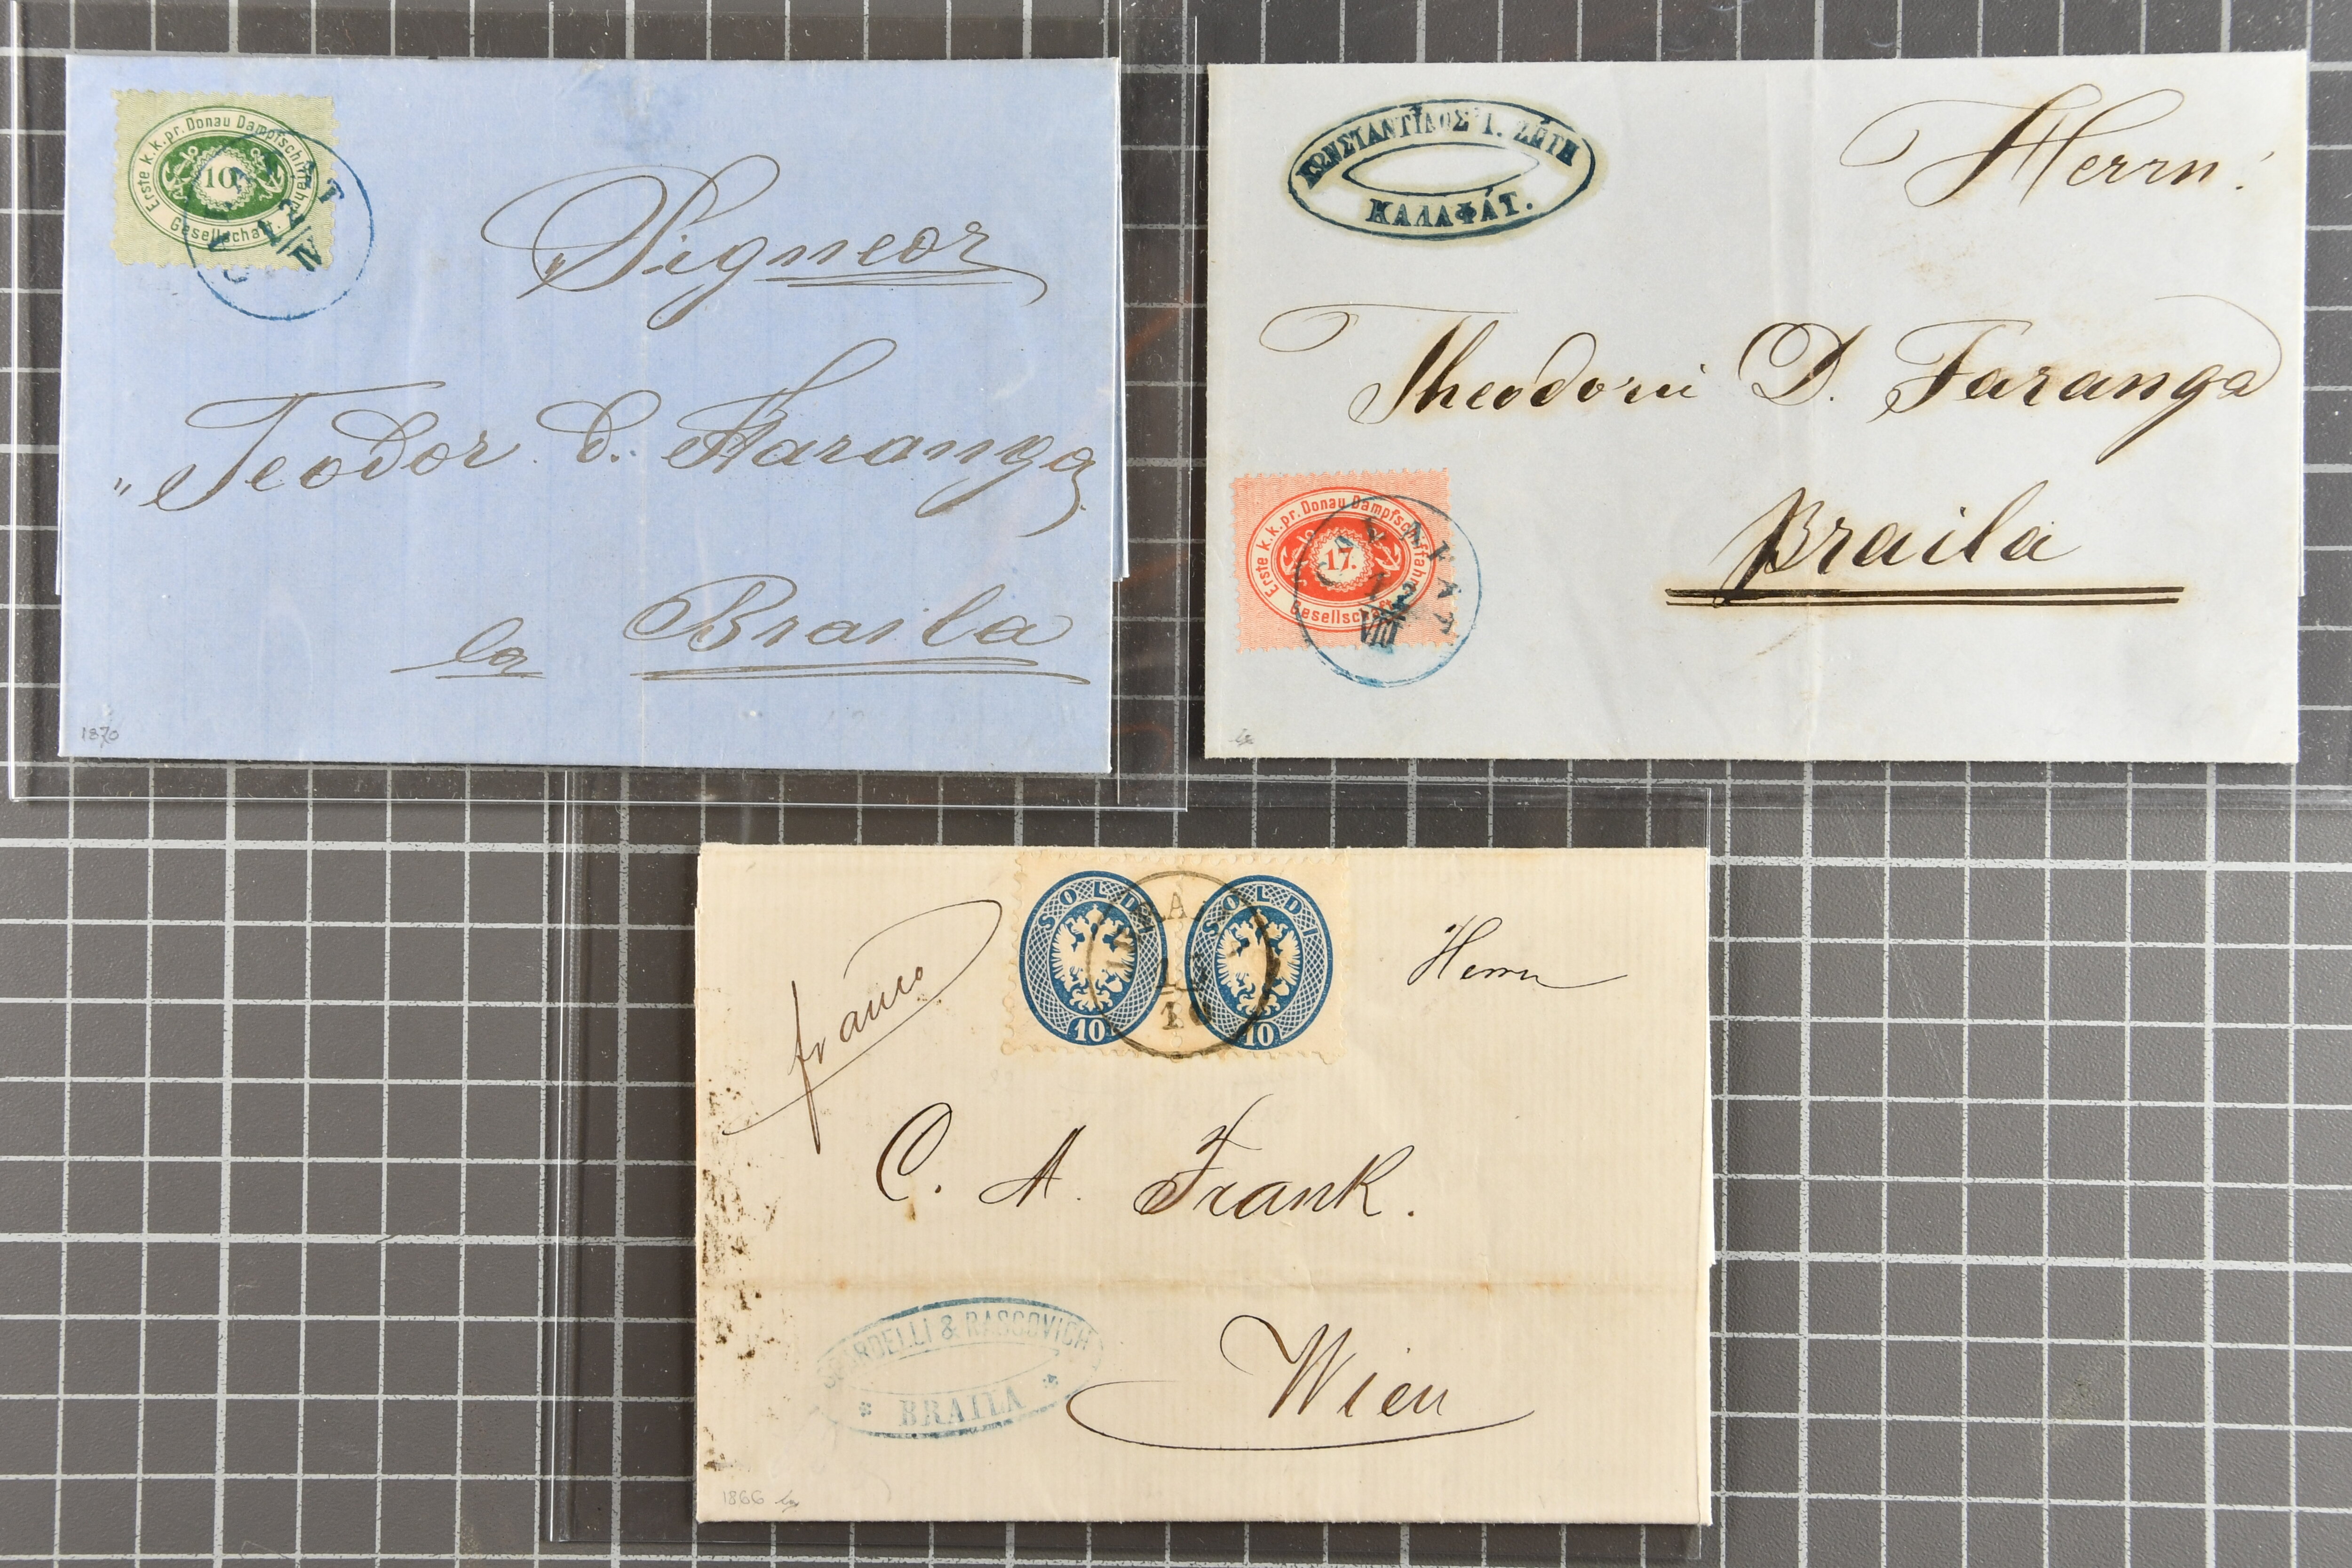 Erste k.k.pr. Donau Dampfschifffahrt
10
Gesellschaft.
12
IV
Signeor
„Teodor D. Faranga
la Braila
1870
ΚΩΝΣΤΑΝΤΙΝΟΣ Ι. ΖΩΤΗ
ΚΑΛΑΦΑΤ.
Herrn!
Theodorii D. Faranga
Braila
Erste k.k.pr. Donau Dampfschifffahrt
17.
Gesellschaft
CALAFAT
12
VIII
franco
SOLDI
10
SOLDI
10
Herrn
C. A. Frank.
Wien
& RASCOVICH
* BRAILA *
1866